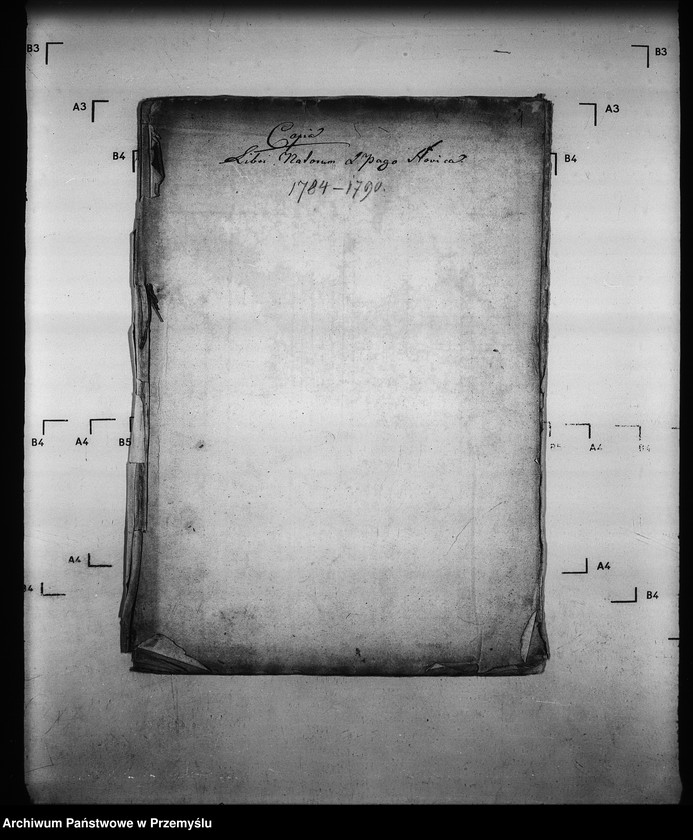 B3 B3
A3 A3
Copia
B4 Libri Natorum Pago Novica B4
1784–1790.
B4 A4 B5 B5 A4 B4
A4 A4
B4 B4
Archiwum Państwowe w Przemyślu